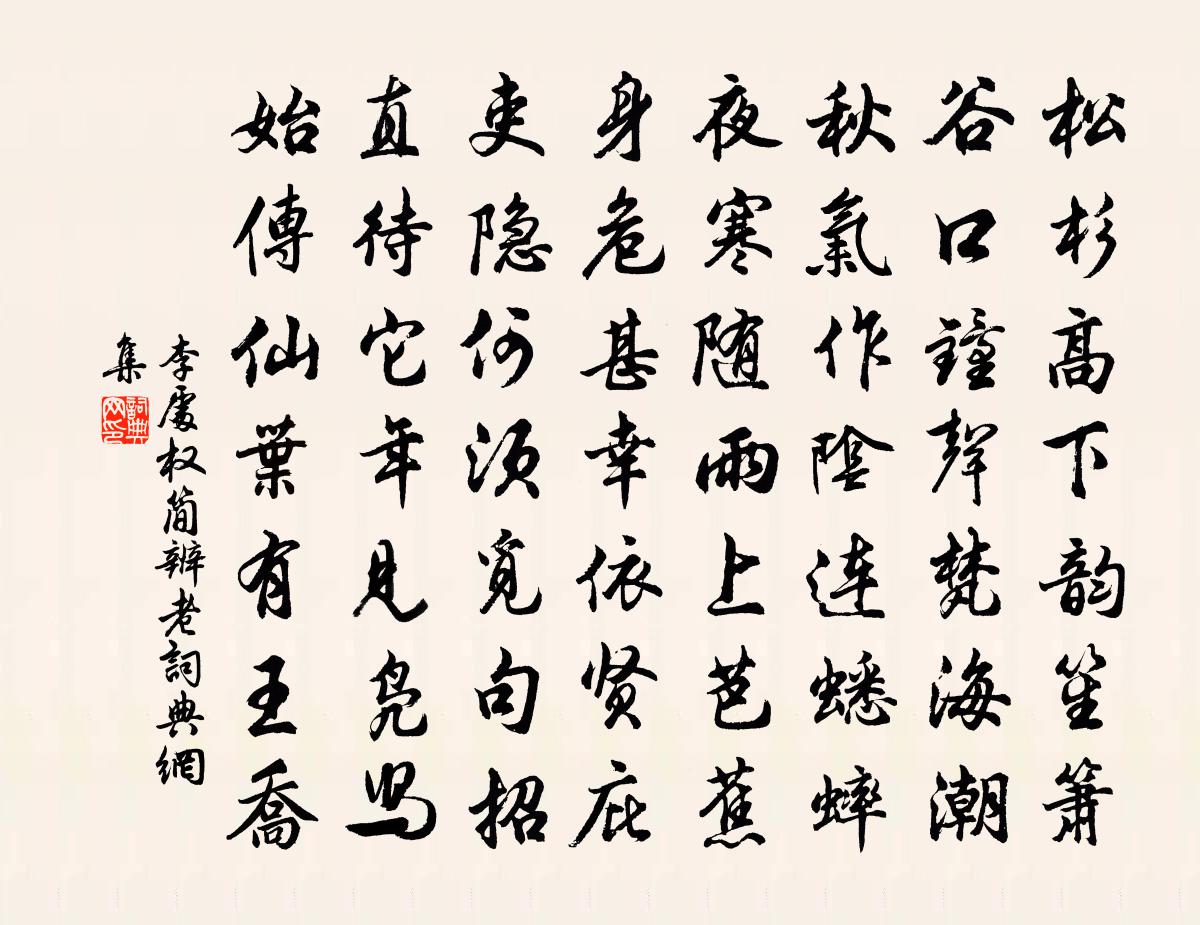 松杉高下韵笙箫
谷口鐘聲梵海潮
秋氣作陰連蟋蟀
夜寒随雨上芭蕉
身危甚幸依贤庇
吏隐何须觅句招
直待它年見凫舄
始傳仙葉有王喬
李處权简辨老詞典網
集
詞典网印